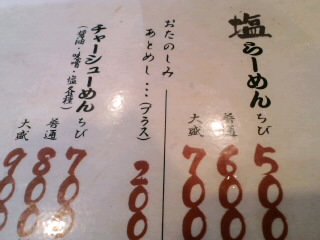 塩らーめん
ちび 500
普通 600
大盛 700
おたのしみ
あとめし…(プラス) 200
チャーシューめん
(醤油・味噌・塩各種)
ちび 700
普通 800
大盛 900